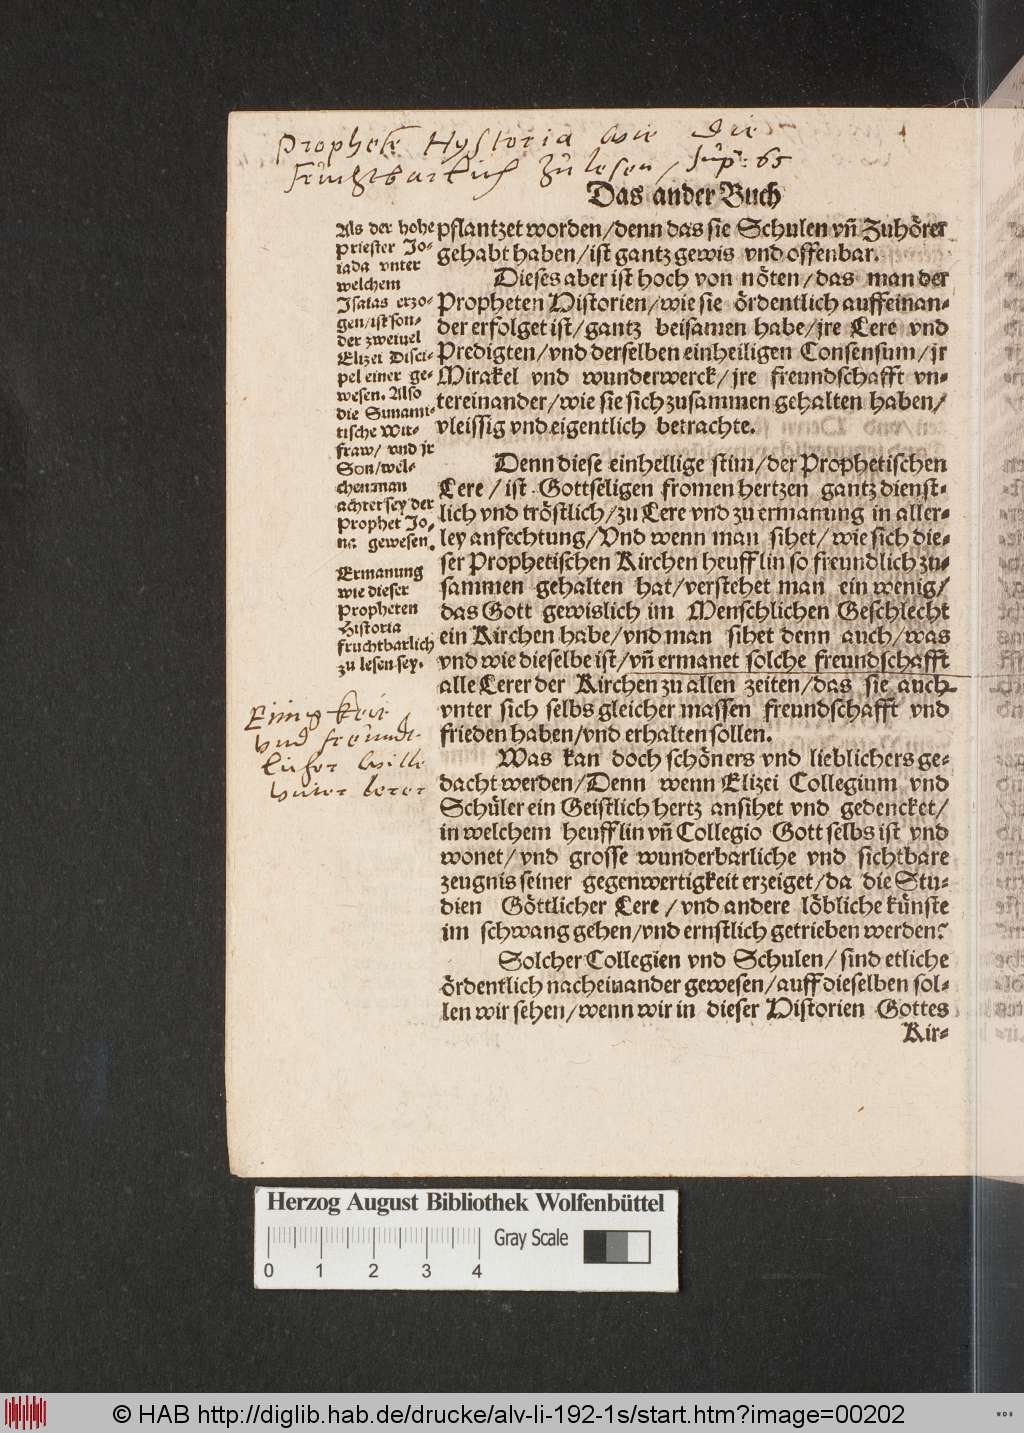 Prophete Hystoria wie die
fruchtbarlich zu lesen / sup: 65
Das ander Buch
Als der hohe
Priester Jo-
iada vnter
welchem
Isaias erzo-
gen/ist son-
der zweiuel
Elizei Disci-
pel einer ge-
wesen. Also
die Sunami-
tische Wit-
fraw/ vnd jr
Son/wel-
chen man
achtet sey der
Prophet Jo-
na gewesen.
Ermanung
wie dieser
Propheten
Historia
fruchtbarlich
zu lesen sey.
Einigkeit
vnd freundt-
licher wille
vnter lerer
pflantzet worden/denn das sie Schulen vñ Zuhörer
gehabt haben/ist gantz gewis vnd offenbar.
Dieses aber ist hoch von nöten/das man der
Propheten Historien/wie sie ördentlich auffeinan-
der erfolget ist/gantz beisamen habe/jre Lere vnd
Predigten/vnd derselben einheiligen Consensum/jr
Mirakel vnd wunderwerck/jre freundschafft vn-
tereinander/wie sie sich zusammen gehalten haben/
vleissig vnd eigentlich betrachte.
Denn diese einhellige stim/der Prophetischen
Lere/ist Gottseligen fromen hertzen gantz dienst-
lich vnd tröstlich/zu Lere vnd zu ermanung in aller-
ley anfechtung/Vnd wenn man sihet/wie sich die-
ser Prophetischen Kirchen heufflin so freundlich zu-
sammen gehalten hat/verstehet man ein wenig/
das Gott gewislich im Menschlichen Geschlecht
ein Kirchen habe/vnd man sihet denn auch/was
vnd wie dieselbe ist/vñ ermanet solche freundschafft
alle Lerer der Kirchen zu allen zeiten/das sie auch
vnter sich selbs gleicher massen freundschafft vnd
frieden haben/vnd erhalten sollen.
Was kan doch schöners vnd lieblichers ge-
dacht werden/Denn wenn Elizei Collegium vnd
Schüler ein Geistlich hertz ansihet vnd gedencket/
in welchem heufflin vñ Collegio Gott selbs ist vnd
wonet/vnd grosse wunderbarliche vnd sichtbare
zeugnis seiner gegenwertigkeit erzeiget/da die Stu-
dien Göttlicher Lere/vnd andere löbliche künste
im schwang gehen/vnd ernstlich getrieben werden?
Solcher Collegien vnd Schulen/sind etliche
ördentlich nacheinander gewesen/auff dieselben sol-
len wir sehen/wenn wir in dieser Historien Gottes
Kir-
Herzog August Bibliothek Wolfenbüttel
Gray Scale
0 1 2 3 4
© HAB http://diglib.hab.de/drucke/alv-li-192-1s/start.htm?image=00202